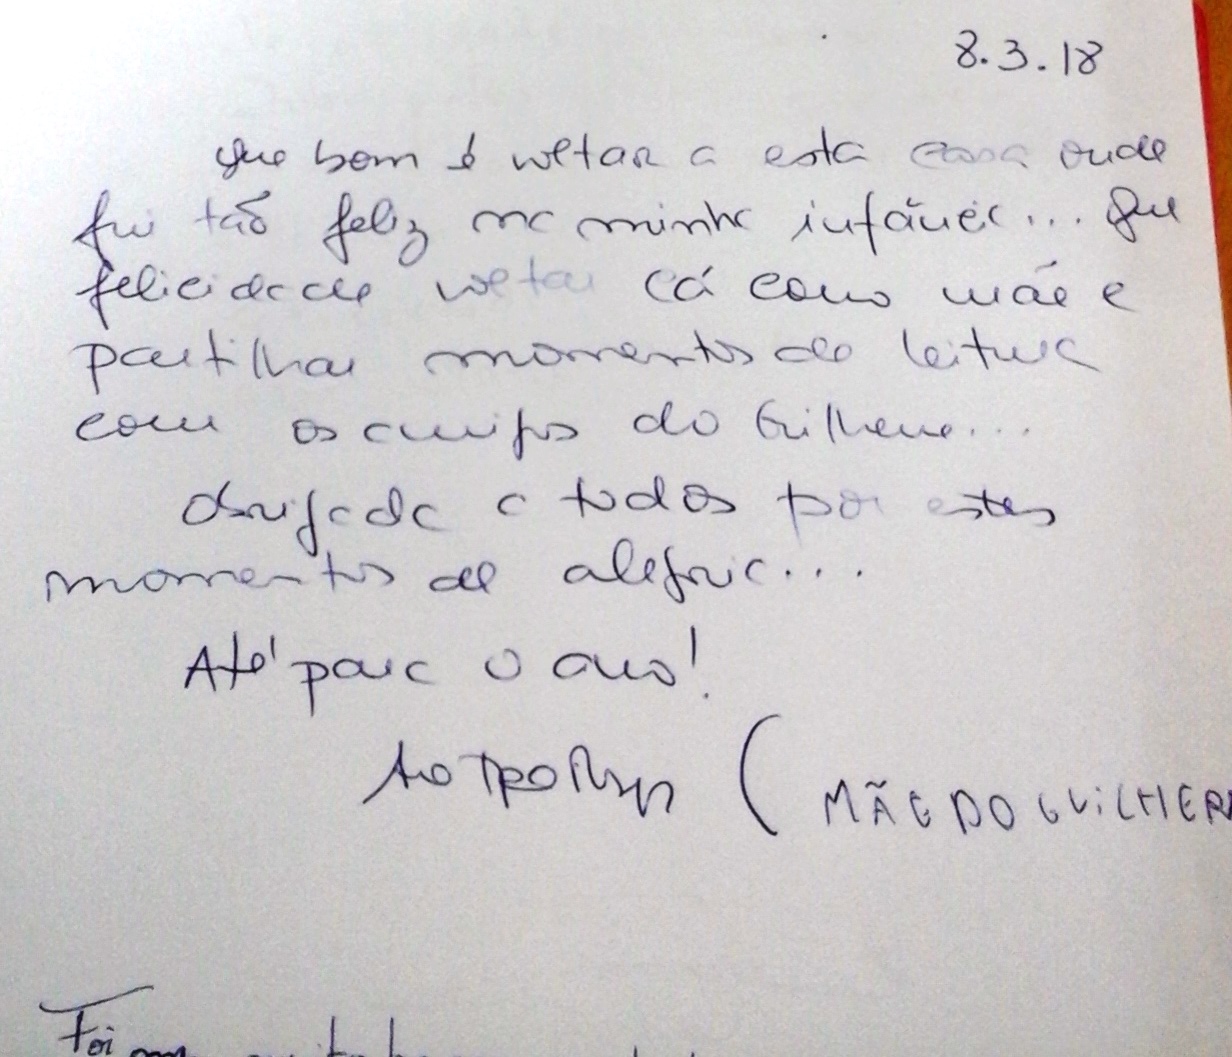 8.3.18
Que bom é voltar a esta casa onde
fui tão feliz na minha infância... Que
felicidade voltar cá como mãe e
partilhar momentos de leitura
com os amigos do Guilherme...
Obrigada a todos por estes
momentos de alegria...
Até para o ano!
(MÃE DO GUILHER
Foi